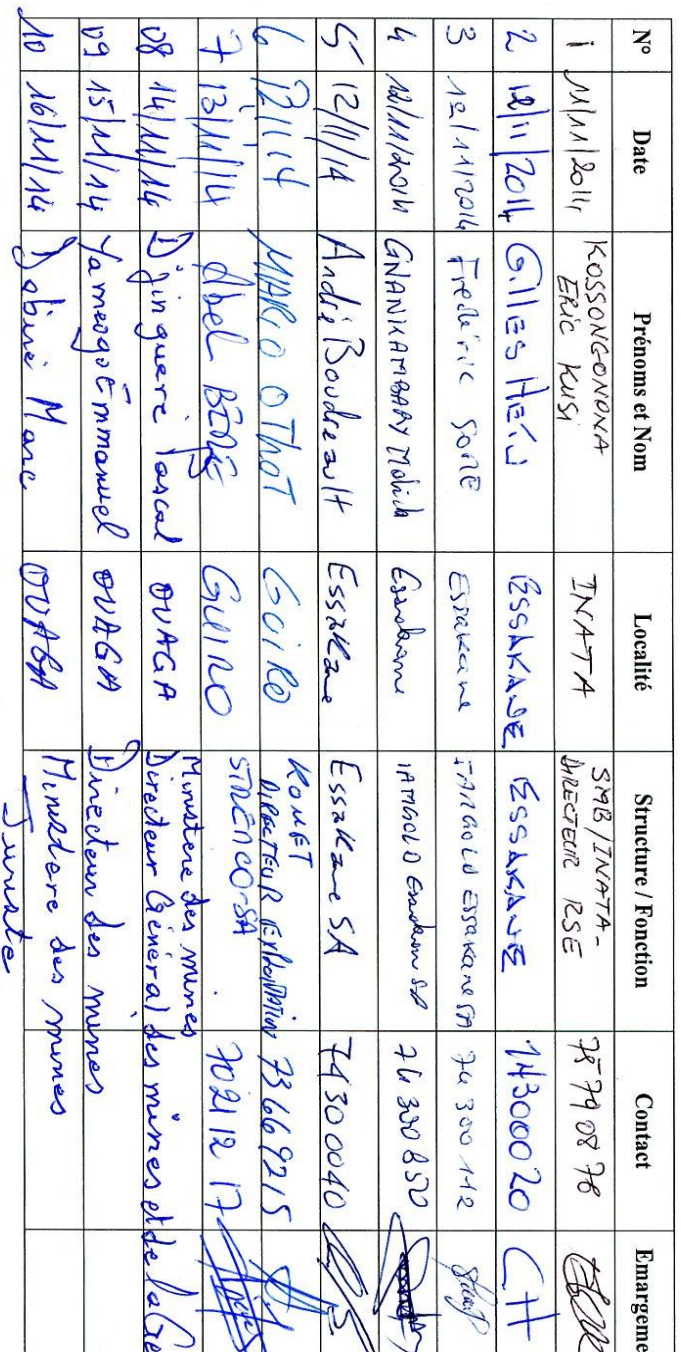 N° Date Prénoms et Nom Localité Structure / Fonction Contact Emargeme
1 11/11/2014 KOSSONGONONA ERIC KUSI INATA SMB/INATA- DIRECTEUR RSE 78 79 08 78
2 12/11/2014 GILLES HEIN ESSAKANE ESSAKANE 74300020 GH
3 12/11/2014 Frédéric SORE Essakane IAMGOLD ESSAKANE SA 74 300 112
4 12/11/2014 GNANKAMBARY Essakane IAMGOLD Essakane SA 74 300 850
5 12/11/14 André Boudreault Essakane Essakane SA 74300040
6 12/11/14 MARIO OTHOT GUIRO KOMET DIRECTEUR EXPLOITATION 73669215
7 13/11/14 Abel GUIRO STRENCO-SA 702112 17
08 14/11/14 Djinguere Pascal OUAGA Ministere des mines Directeur Général des mines et de la Gé
09 15/11/14 Yameogo Emmanuel OUAGA Directeur des mines
10 16/11/14 Dabiré Marc OUAGA Ministere des mines Juriste